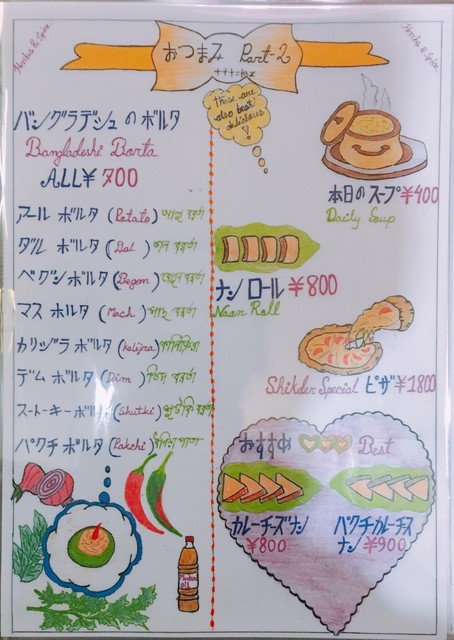 Herbs & Spice
Herbs & Spice
おつまみ Part-2
These are also best delicious!
バングラデシュのボルタ
Bangladeshi Borta
ALL¥700
アール ボルタ (Potato) আলু ভর্তা
ダル ボルタ (Dal) ডাল ভর্তা
ベグン ボルタ (Begon) বেগুন ভর্তা
マス ボルタ (Mach) মাছ ভর্তা
カリジラ ボルタ (Kalijra) কালিজিরা
デム ボルタ (Dim) ডিম ভর্তা
スートーキーボルタ (Shutki) শুটকি ভর্তা
パクチ ボルタ (Pakchi) ধনিয়া পাতা
本日のスープ¥400
Daily Soup
ナン ロール ¥800
Naan Roll
Shikder Special ピザ¥1800
おすすめ Best
カレーチーズナン
¥800
パクチーカレーチーズ
ナン ¥900